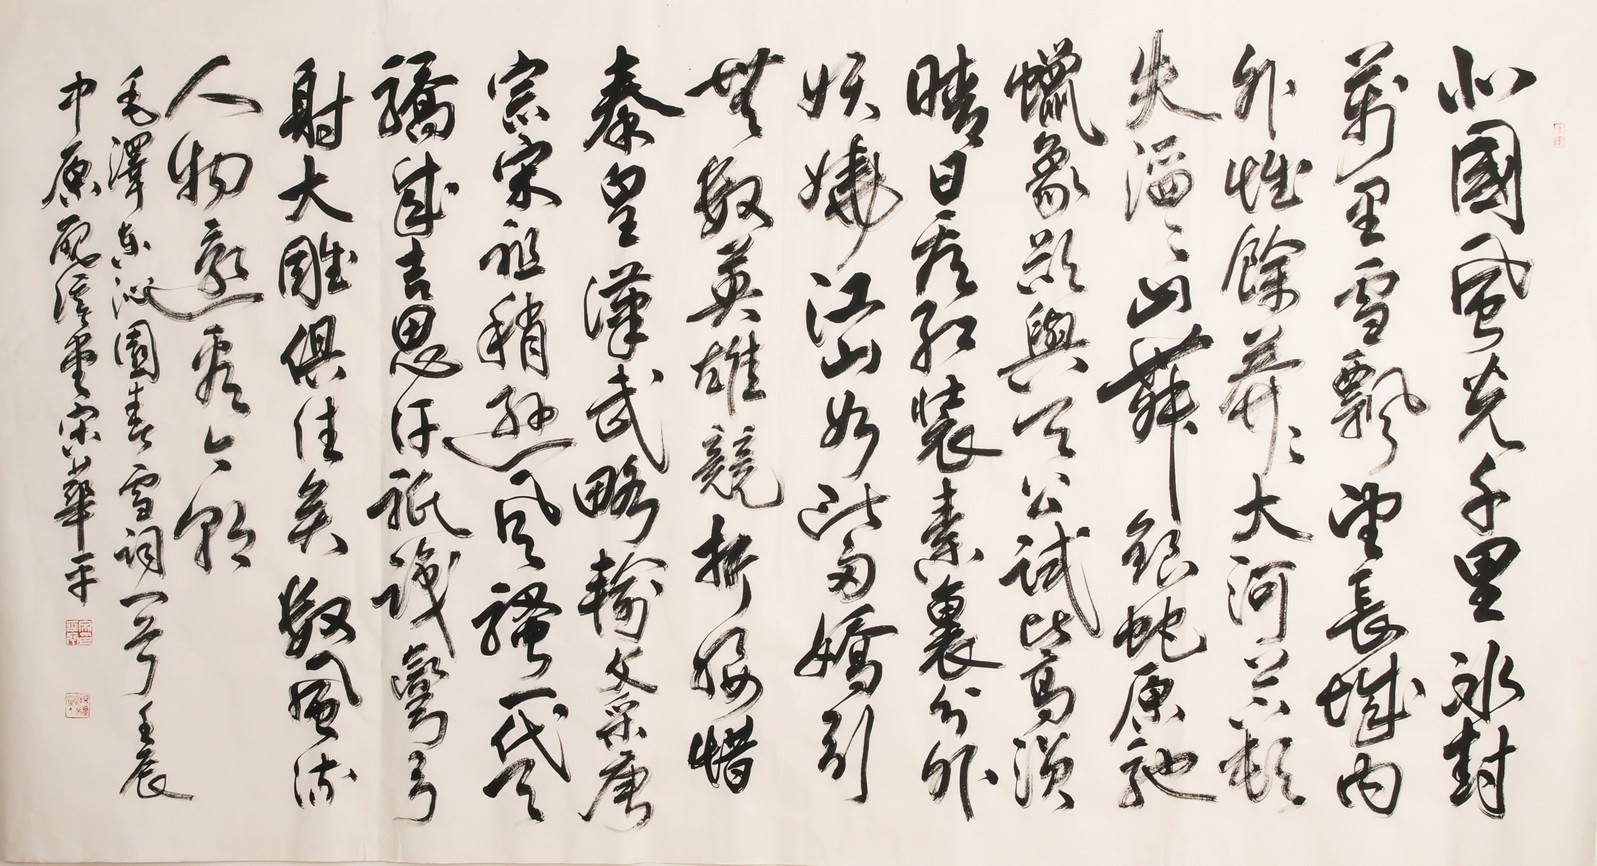 北國風光千里冰封
萬里雪飄望長城内
外惟餘莽〻大河上下頓
失滔〻山舞銀蛇原馳
蠟象欲與天公試比高須
晴日看紅裝素裹分外
妖嬈江山如此多嬌引
無數英雄競折腰惜
秦皇漢武略輸文采唐
宗宋祖稍遜風騷一代天
驕成吉思汗祇識彎弓
射大雕俱往矣數風流
人物還看今朝
毛澤東沁園春雪詞一首 壬辰
中原堂宋華平